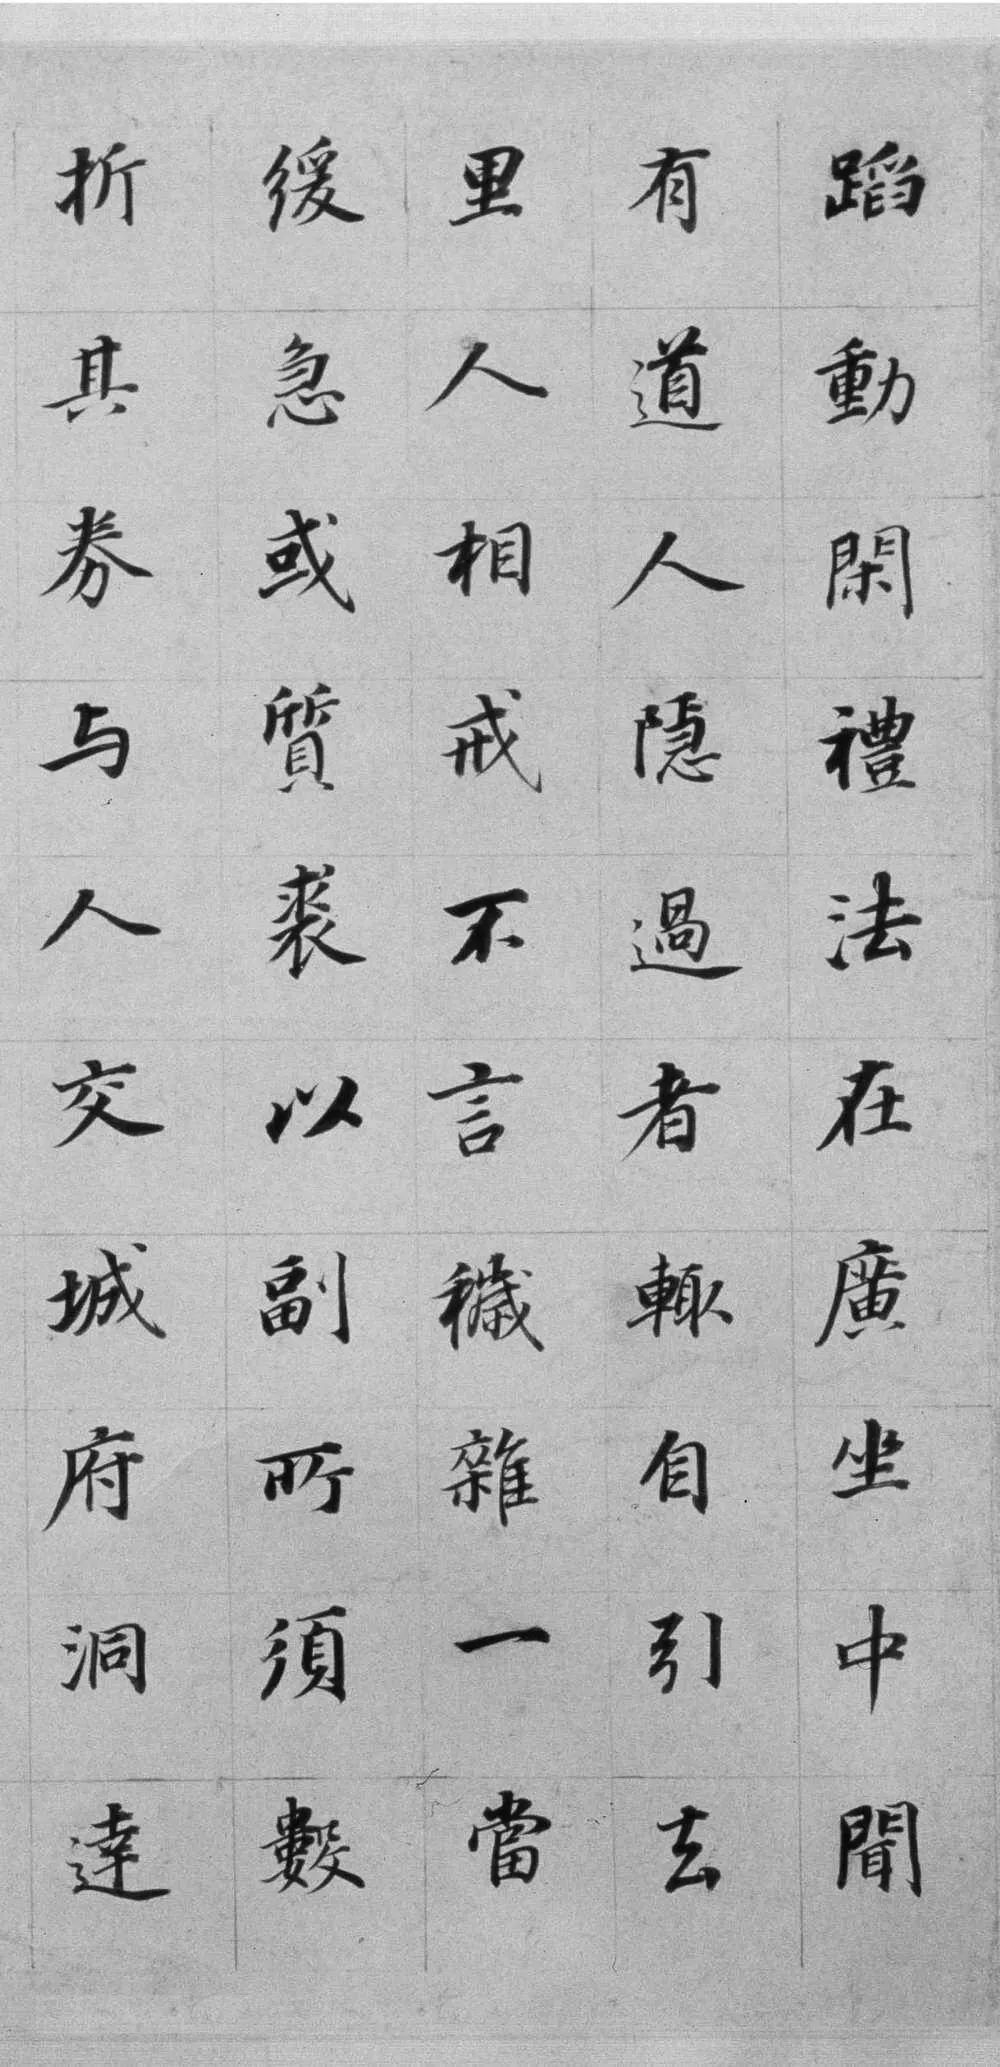 蹈動閑禮法在廣坐中聞
有道人隱過者輒自引去
里人相戒不言穢雜一當
緩急或質裘以副所須數
折其券与人交城府洞達